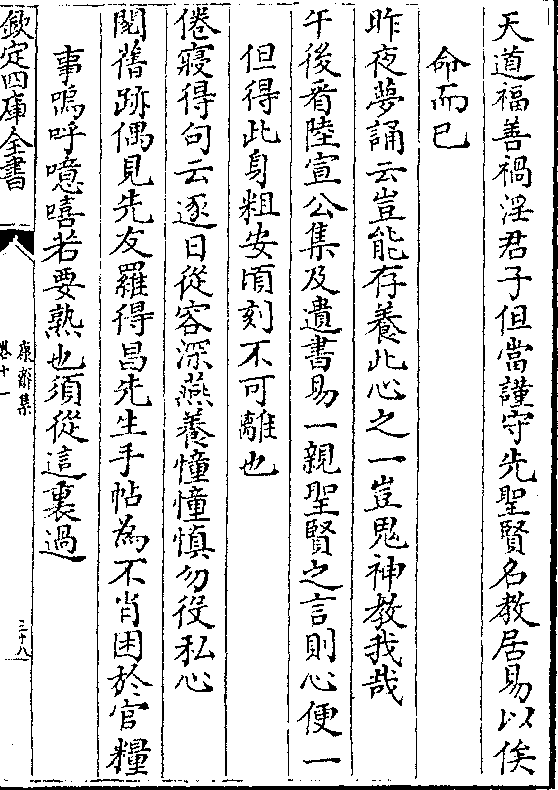 天道福善禍淫君子但當謹守先聖賢名教居易以俟
命而已
昨夜夢誦云豈能存養此心之一豈鬼神教我哉
午後看陸宣公集及遺書易一親聖賢之言則心便一
但得此身粗安頃刻不可離也
倦寢得句云逐日從容深燕養憧憧慎勿役私心
閱舊跡偶見先友羅得昌先生手帖為不肖困於官糧
事嗚呼噫嘻若要熟也須從這裏過
欽定四庫全書
康齋集
卷十一
三十八